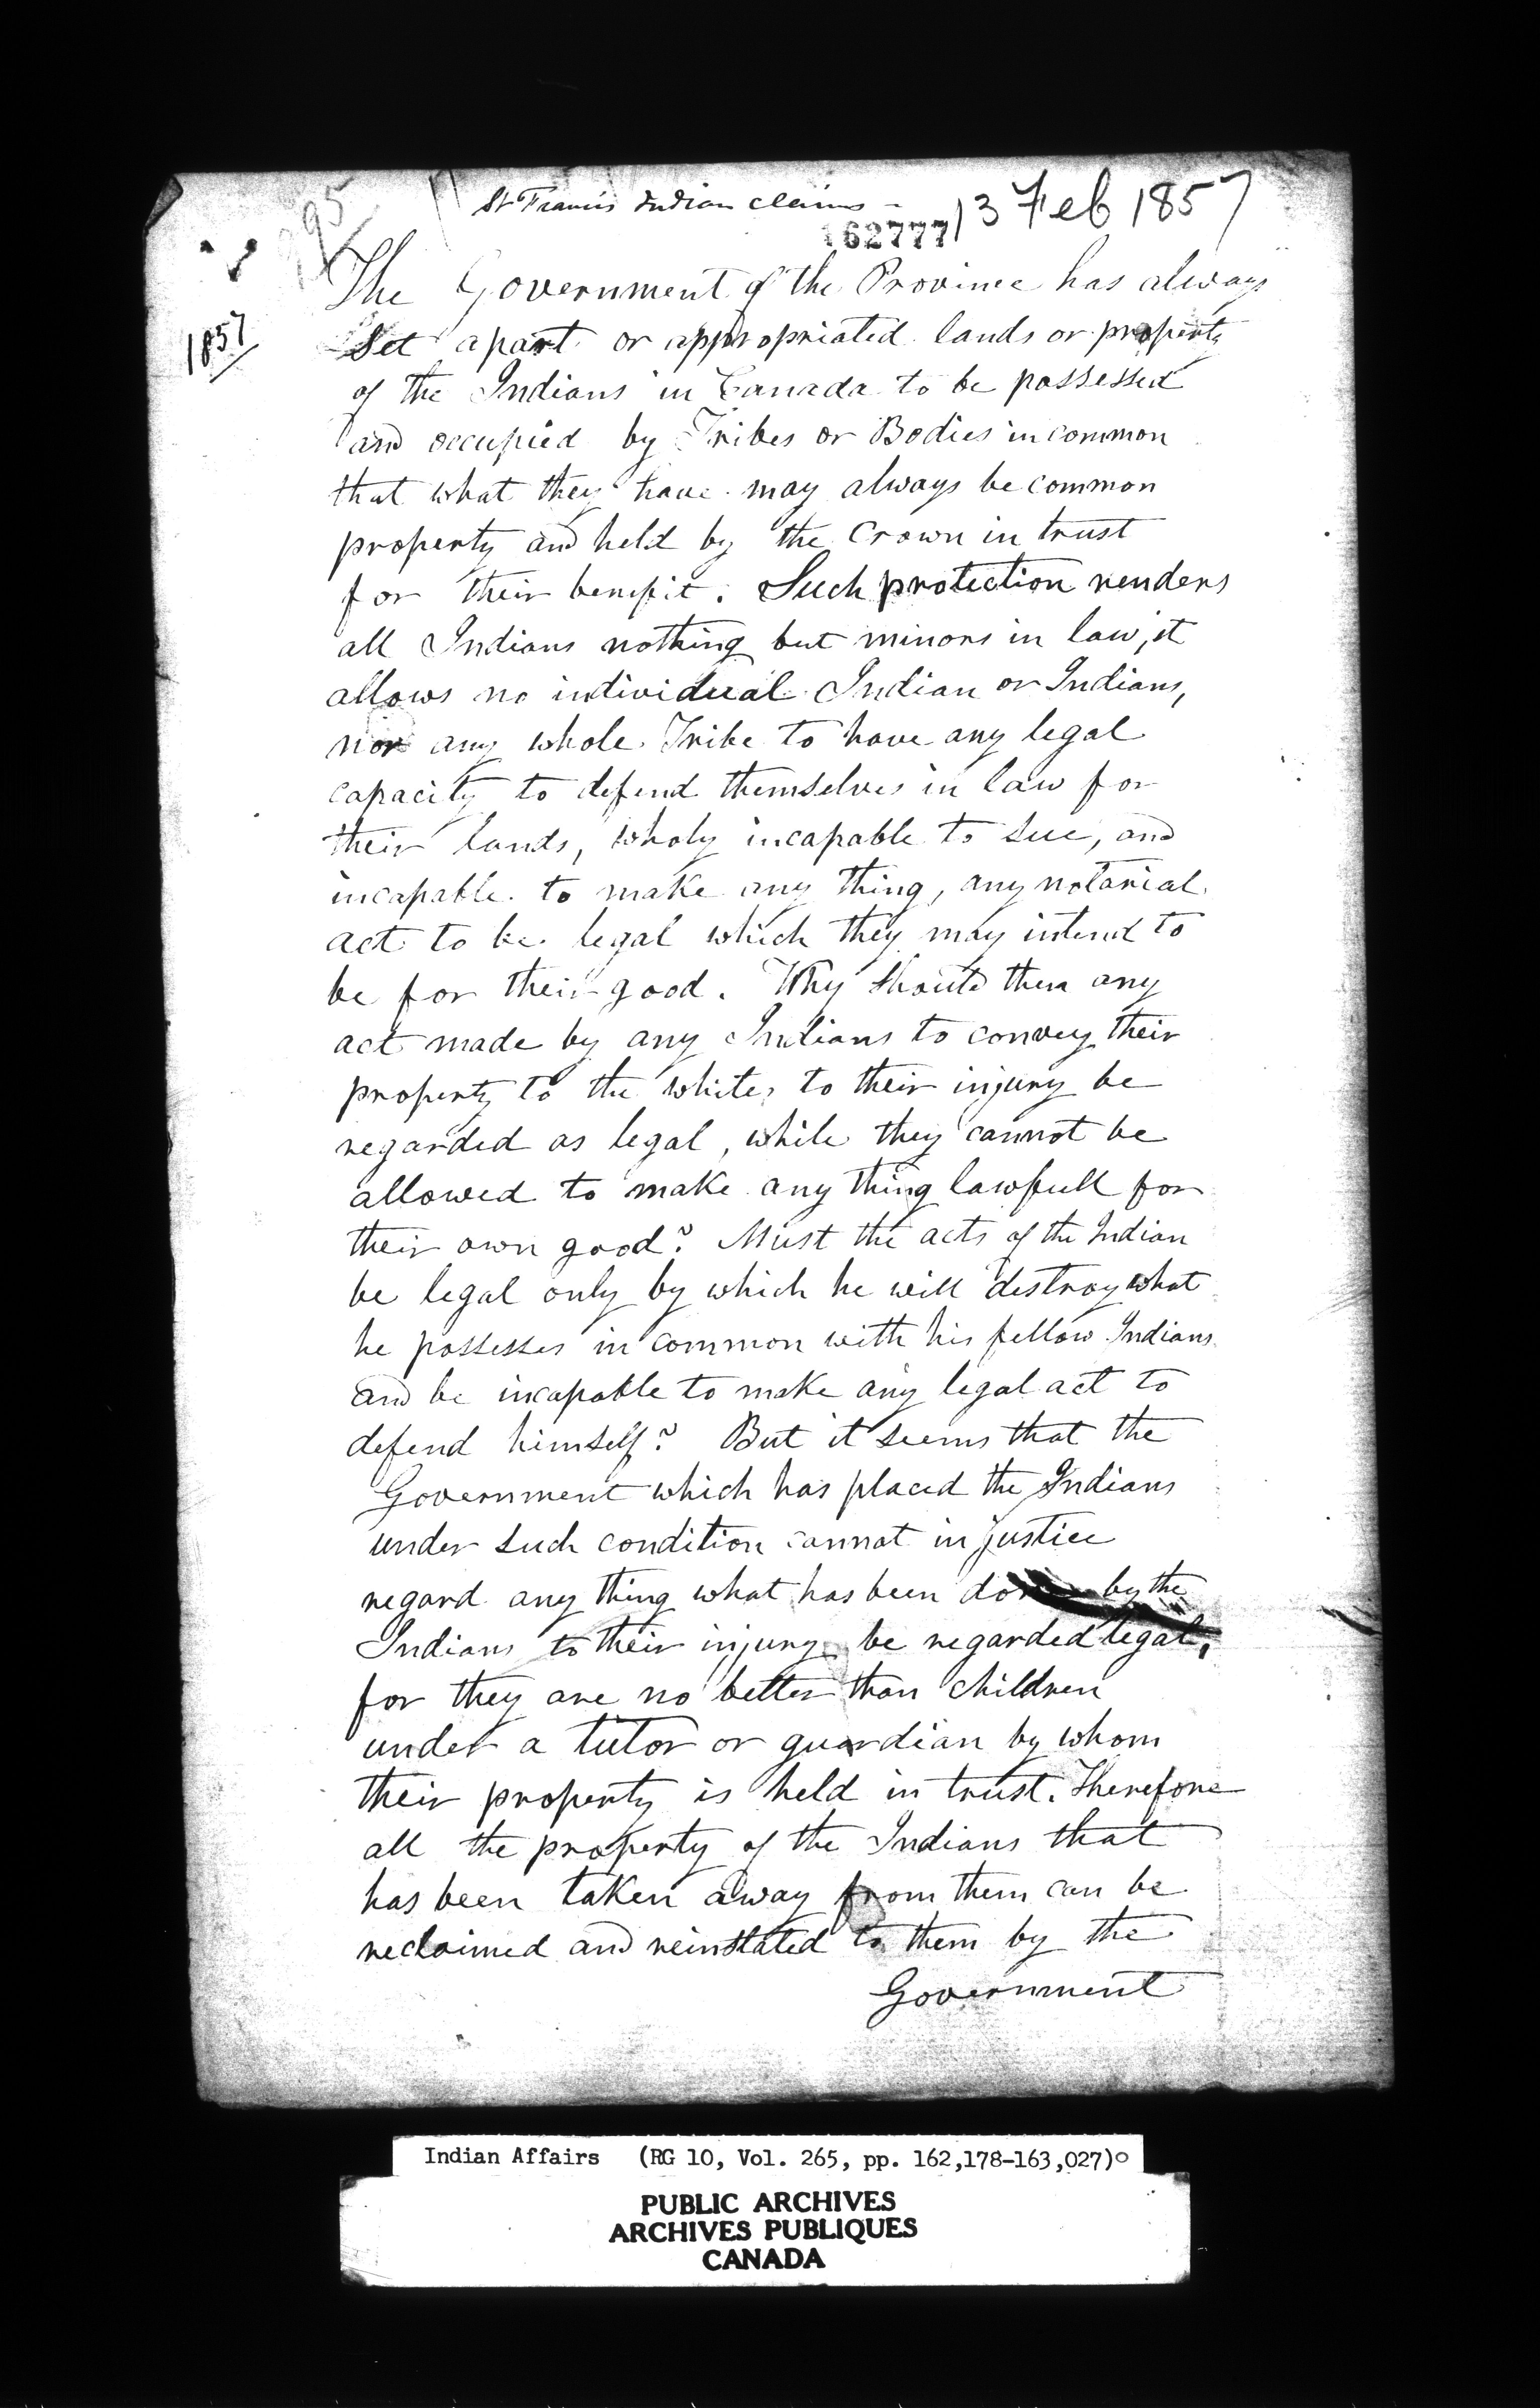 St Francis Indian claims -
162777
13 Feb 1857
1857
The Government of the Province has always
Set apart or appropriated lands or property
of the Indians in Canada to be possessed
and occupied by Tribes or Bodies in common
that what they have may always be common
property and held by the Crown in trust
for their benefit. Such protection renders
all Indians nothing but minors in law, it
allows no individual Indian or Indians,
nor any whole Tribe to have any legal
capacity to defend themselves in law for
their lands, wholy incapable to sue, and
incapable to make any thing, any notarial
act to be legal which they may intend to
be for their good. Why should then any
act made by any Indians to convey their
property to the whites to their injury be
regarded as legal, while they cannot be
allowed to make any thing lawfull for
their own good? Must the acts of the Indian
be legal only by which he will destroy what
he possesses in common with his fellow Indians
and be incapable to make any legal act to
defend himself? But it seems that the
Government which has placed the Indians
under such condition cannot in justice
regard any thing what has been done by the
Indians to their injury be regarded legal,
for they are no better than children
under a tutor or guardian by whom
their property is held in trust. Therefore
all the property of the Indians that
has been taken away from them can be
reclaimed and reinstated to them by the
Government
Indian Affairs (RG 10, Vol. 265, pp. 162,178-163,027)
PUBLIC ARCHIVES
ARCHIVES PUBLIQUES
CANADA